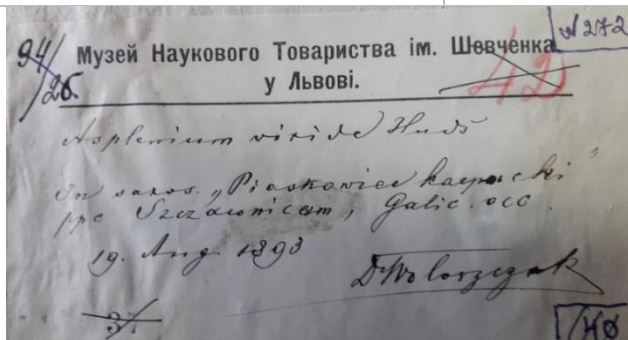 94/26
№ 272
Музей Наукового Товариства ім. Шевченка
у Львові.
42
Asplenium viride Huds
In saxos. „Piaskowiec karpacki”
ppe Szczawnicam, Galic. occ.
19. Aug. 1893
Dr Wołoszczak